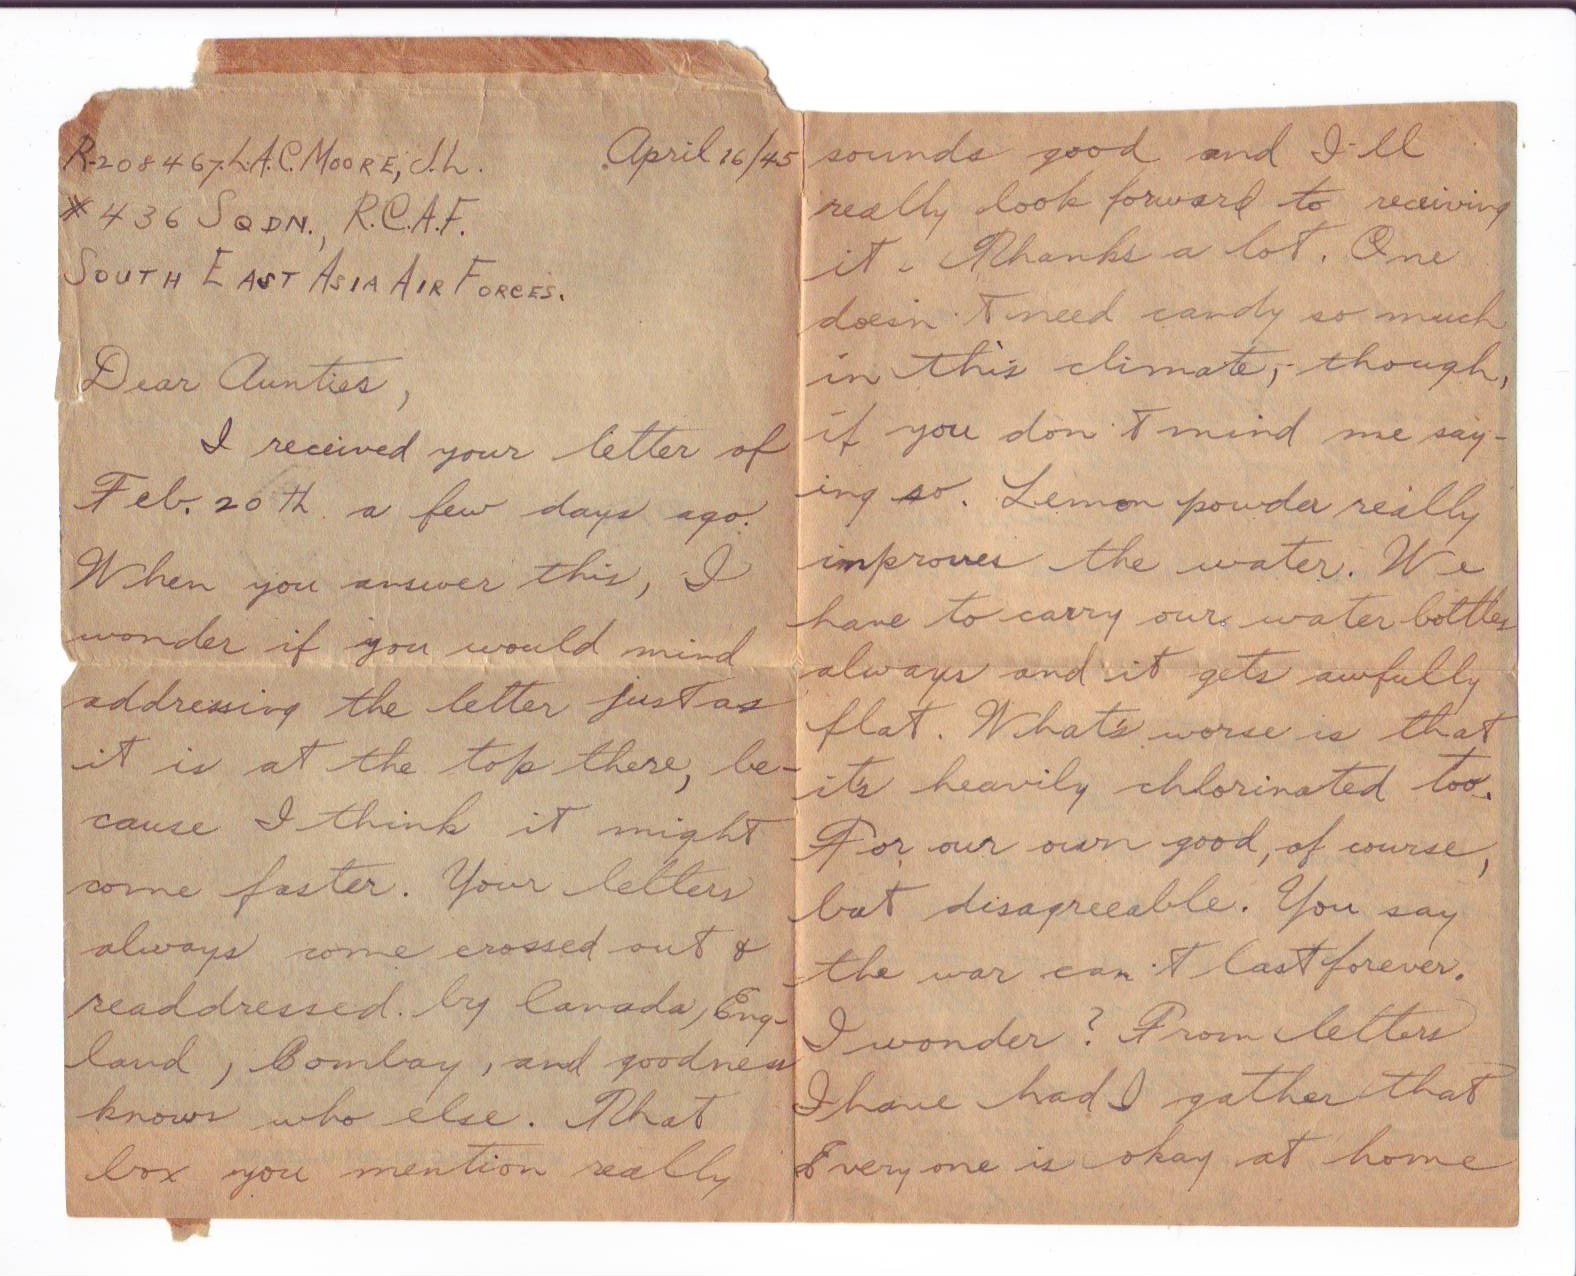 R-208467. L.A.C. MOORE, J.L. April 16/45
#436 SQDN., R.C.A.F.
SOUTH EAST ASIA AIR FORCES.
Dear Aunties,
I received your letter of
Feb. 20th a few days ago.
When you answer this, I
wonder if you would mind
addressing the letter just as
it is at the top there, be-
cause I think it might
come faster. Your letters
always come crossed out &
readdressed. by Canada, Eng-
land, Bombay, and goodness
knows who else. That
box you mention really
sounds good and I'll
really look forward to receiving
it. Thanks a lot. One
doesn't need candy so much
in this climate, though,
if you don't mind me say-
ing so. Lemon powder really
improves the water. We
have to carry our water bottles
always and it gets awfully
flat. What's worse is that
it's heavily chlorinated too.
For our own good, of course,
but disagreeable. You say
the war can't last forever.
I wonder? From letters
I have had I gather that
Everyone is okay at home